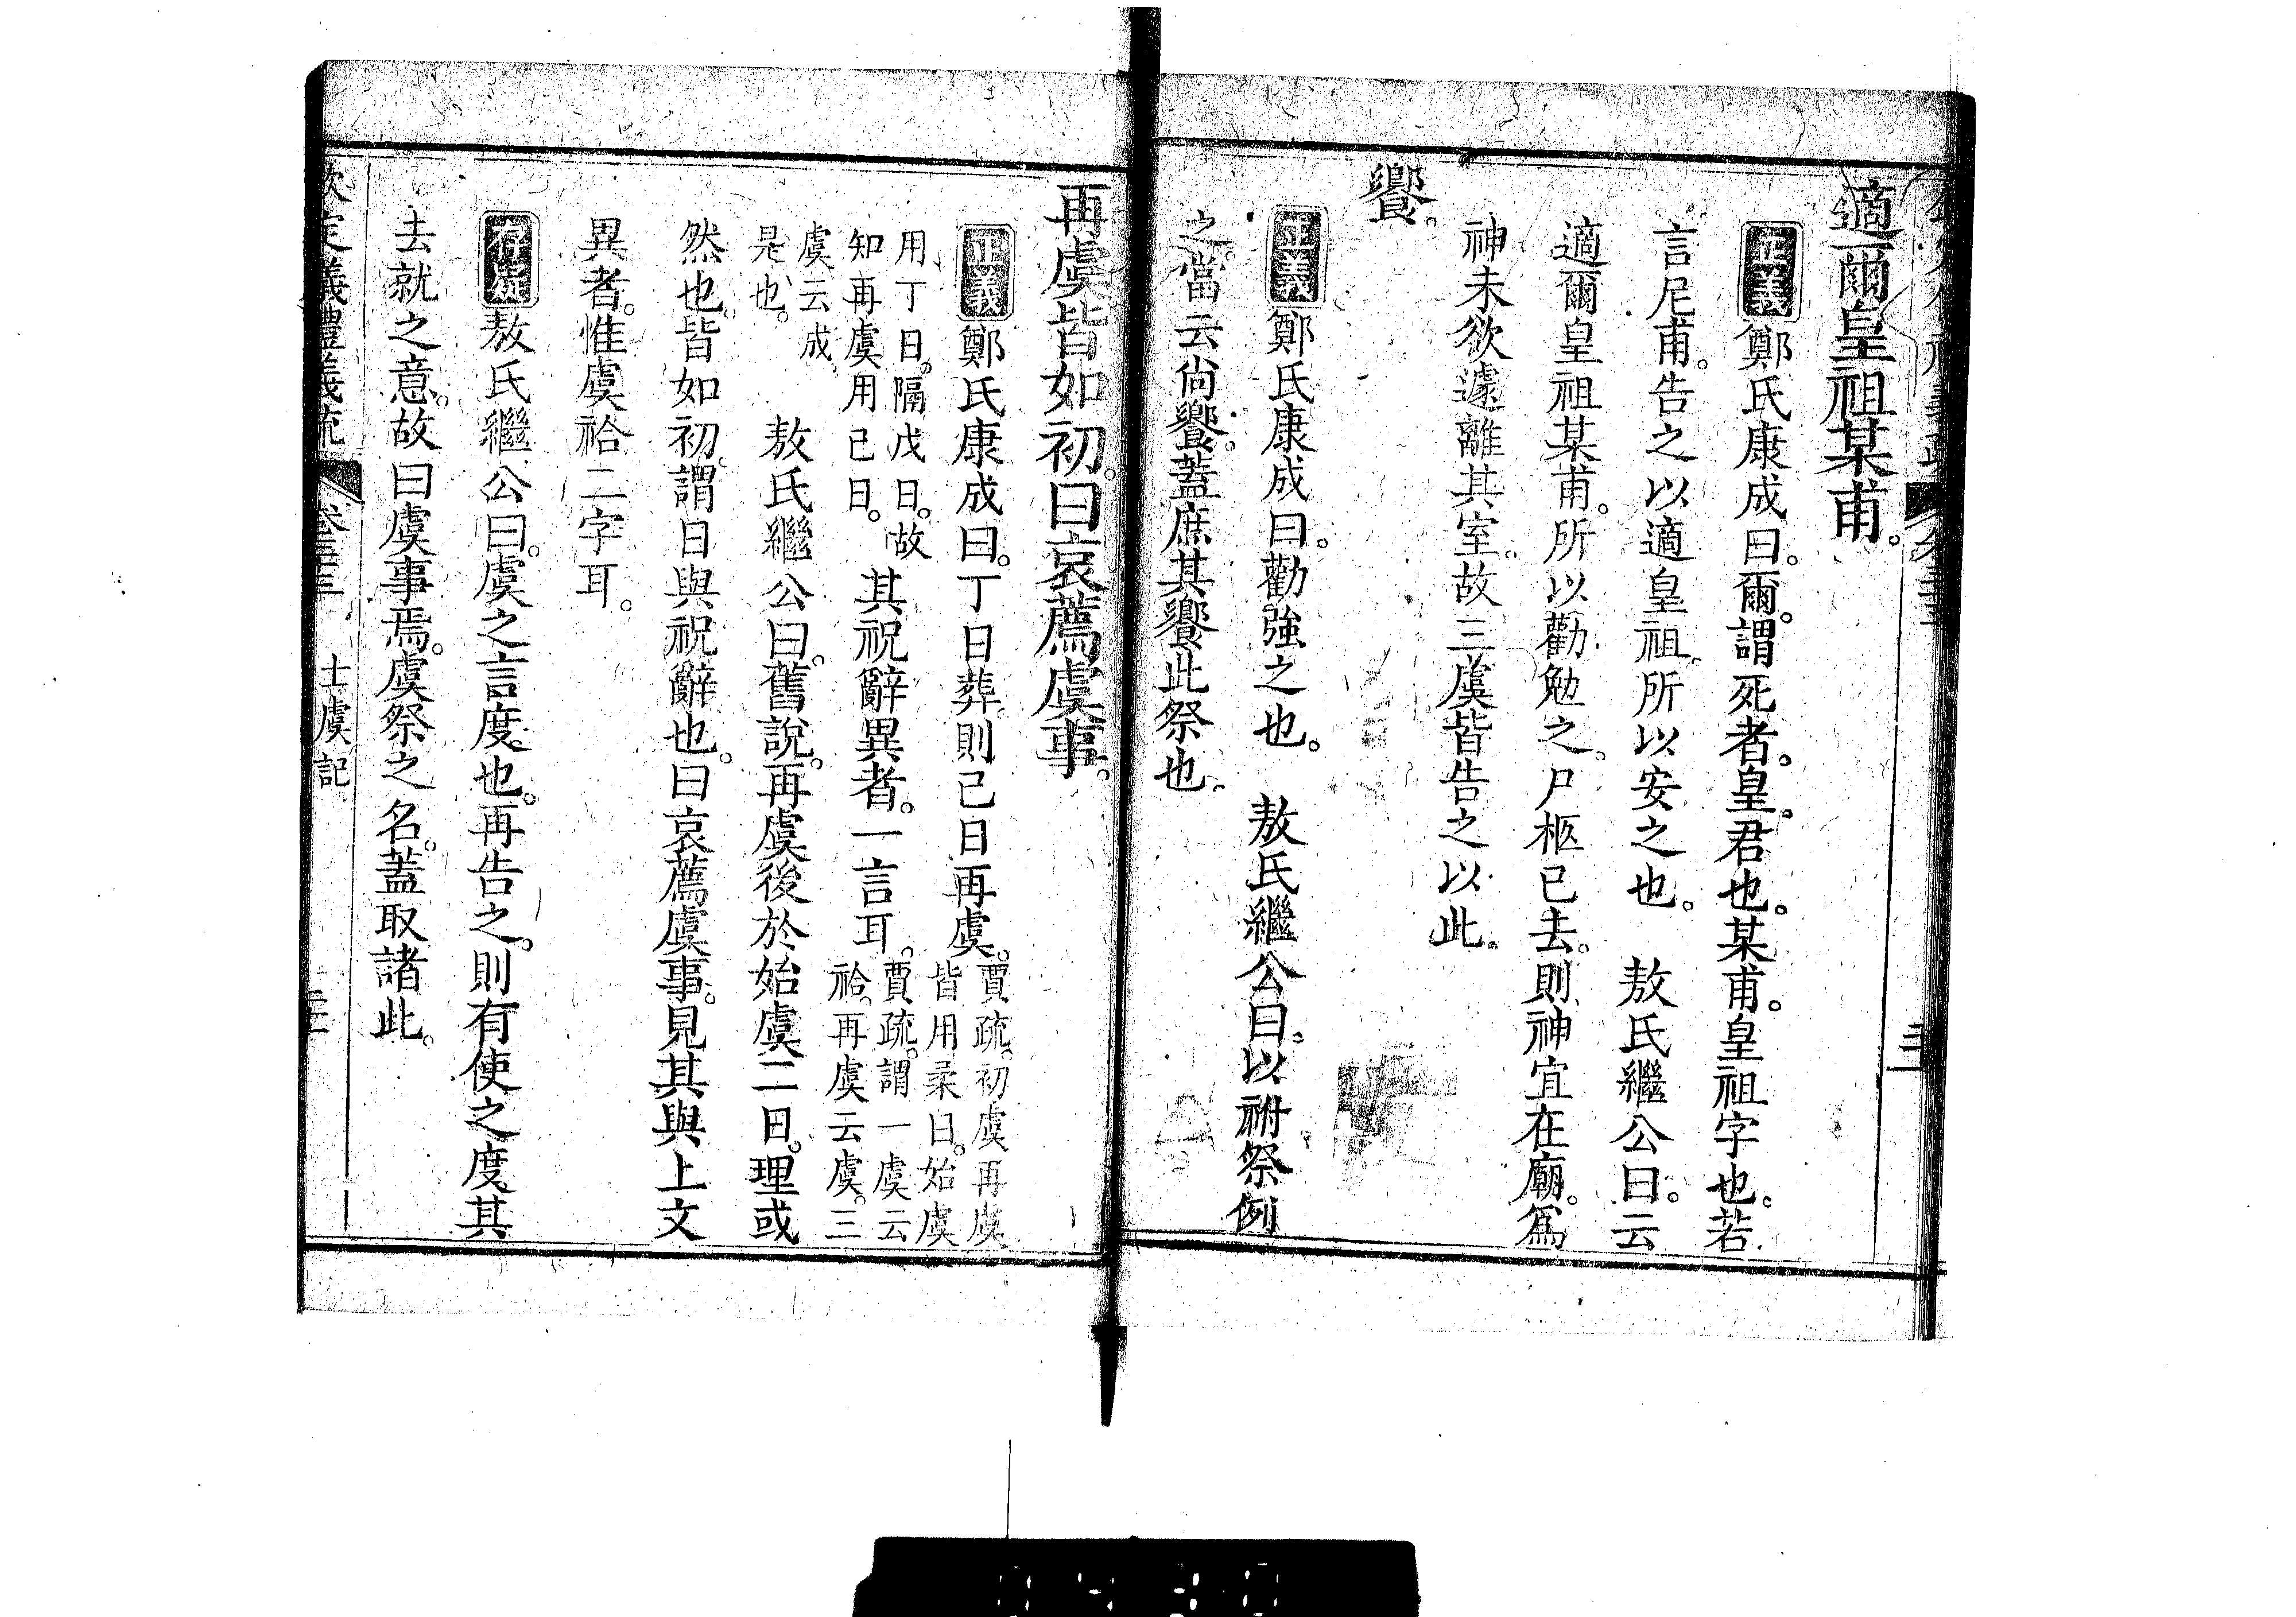 適爾皇祖某甫。
正義鄭氏康成曰。爾。謂死者。皇。君也。某甫。皇祖字也。若
言尼甫。告之以適皇祖。所以安之也。　敖氏繼公曰。云
適爾皇祖某甫。所以勸勉之。尸柩已去。則神宜在廟。爲
神未欲遽離其室。故三虞皆告之以此。
饗。
正義鄭氏康成曰。勸強之也。　敖氏繼公曰。以祔祭例
之。當云尙饗。蓋庶其饗此祭也。
再虞皆如初。曰哀薦虞事。
正義鄭氏康成曰。丁日葬。則己日再虞。賈疏。初虞再虞
皆用柔日。始虞
用丁日。隔戊日。故
知再虞用己日。其祝辭異者。一言耳。賈疏。謂一虞云
祫。再虞云虞。三
虞云成
是也。　敖氏繼公曰。舊說。再虞後於始虞二日。理或
然也。皆如初。謂日與祝辭也。曰哀薦虞事。見其與上文
異者。惟虞祫二字耳。
存疑敖氏繼公曰。虞之言度也。再告之。則有使之度其
去就之意。故曰虞事焉。虞祭之名。蓋取諸此。
欽定義禮義疏　卷三十三　士虞記